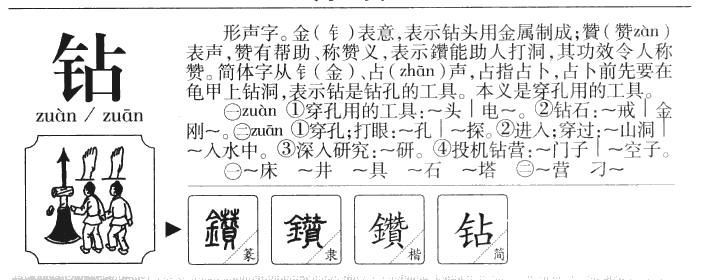 钻
zuàn / zuān
形声字。金(钅)表意,表示钻头用金属制成;贊(赞zàn)
表声,赞有帮助、称赞义,表示鑽能助人打洞,其功效令人称
赞。简体字从钅(金)、占(zhān)声,占指占卜,占卜前先要在
龟甲上钻洞,表示钻是钻孔的工具。本义是穿孔用的工具。
㊀zuàn ①穿孔用的工具:～头|电～。②钻石:～戒|金
刚～。㊁zuān ①穿孔;打眼:～孔|～探。②进入;穿过:～山洞|
～入水中。③深入研究:～研。④投机钻营:～门子|～空子。
㊀～床 ～井 ～具 ～石 ～塔 ㊁～营 刁～
鑽 篆
鑽 隶
鑽 楷
钻 简